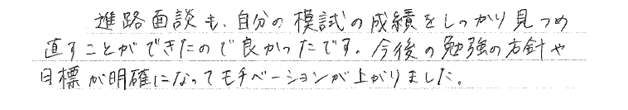 進路面談も、自分の模試の成績をしっかり見つめ
直すことができたので良かったです。今後の勉強の方針や
目標が明確になってモチベーションが上がりました。